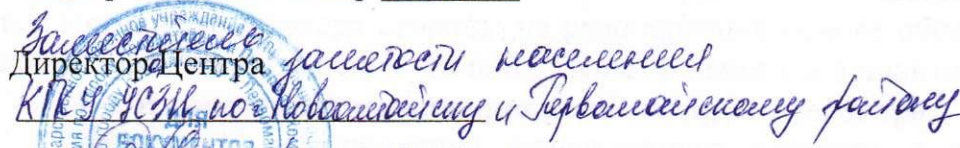 Заместитель
Директор Центра занятости населения
КГКУ УСЗН по Новоалтайску и Первомайскому району
для
документов